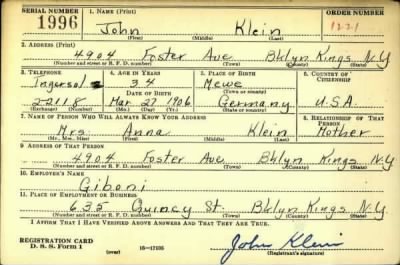 SERIAL NUMBER 1. NAME (Print) ORDER NUMBER
1996 John Klein 1221
(First) (Middle) (Last)
2. ADDRESS (Print)
4904 Foster Ave Bklyn Kings N.Y
(Number and street or R. F. D. number) (Town) (County) (State)
3. TELEPHONE 4. AGE IN YEARS 5. PLACE OF BIRTH 6. COUNTRY OF CITIZENSHIP
Ingersol 2 34 Mewe
DATE OF BIRTH (Town or county)
22118 Mar 27 1906 Germany U.S.A.
(Exchange) (Number) (Mo.) (Day) (Yr.) (State or country)
7. NAME OF PERSON WHO WILL ALWAYS KNOW YOUR ADDRESS 8. RELATIONSHIP OF THAT PERSON
Mrs. Anna Klein Mother
(Mr., Mrs., Miss) (First) (Middle) (Last)
9. ADDRESS OF THAT PERSON
4904 Foster Ave Bklyn Kings N.Y
(Number and street or R. F. D. number) (Town) (County) (State)
10. EMPLOYER'S NAME
Giboni
11. PLACE OF EMPLOYMENT OR BUSINESS
635 Quincy St. Bklyn Kings N.Y
(Number and street or R. F. D. number) (Town) (County) (State)
I AFFIRM THAT I HAVE VERIFIED ABOVE ANSWERS AND THAT THEY ARE TRUE.
REGISTRATION CARD
D. S. S. Form 1 (over) 16—17105 John Klein
(Registrant's signature)